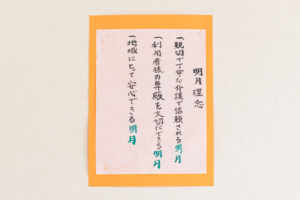 明月 理念
一、親切で丁寧な介護で信頼される明月
一、利用者様の尊厳を大切にできる明月
一、地域にとって安心できる明月